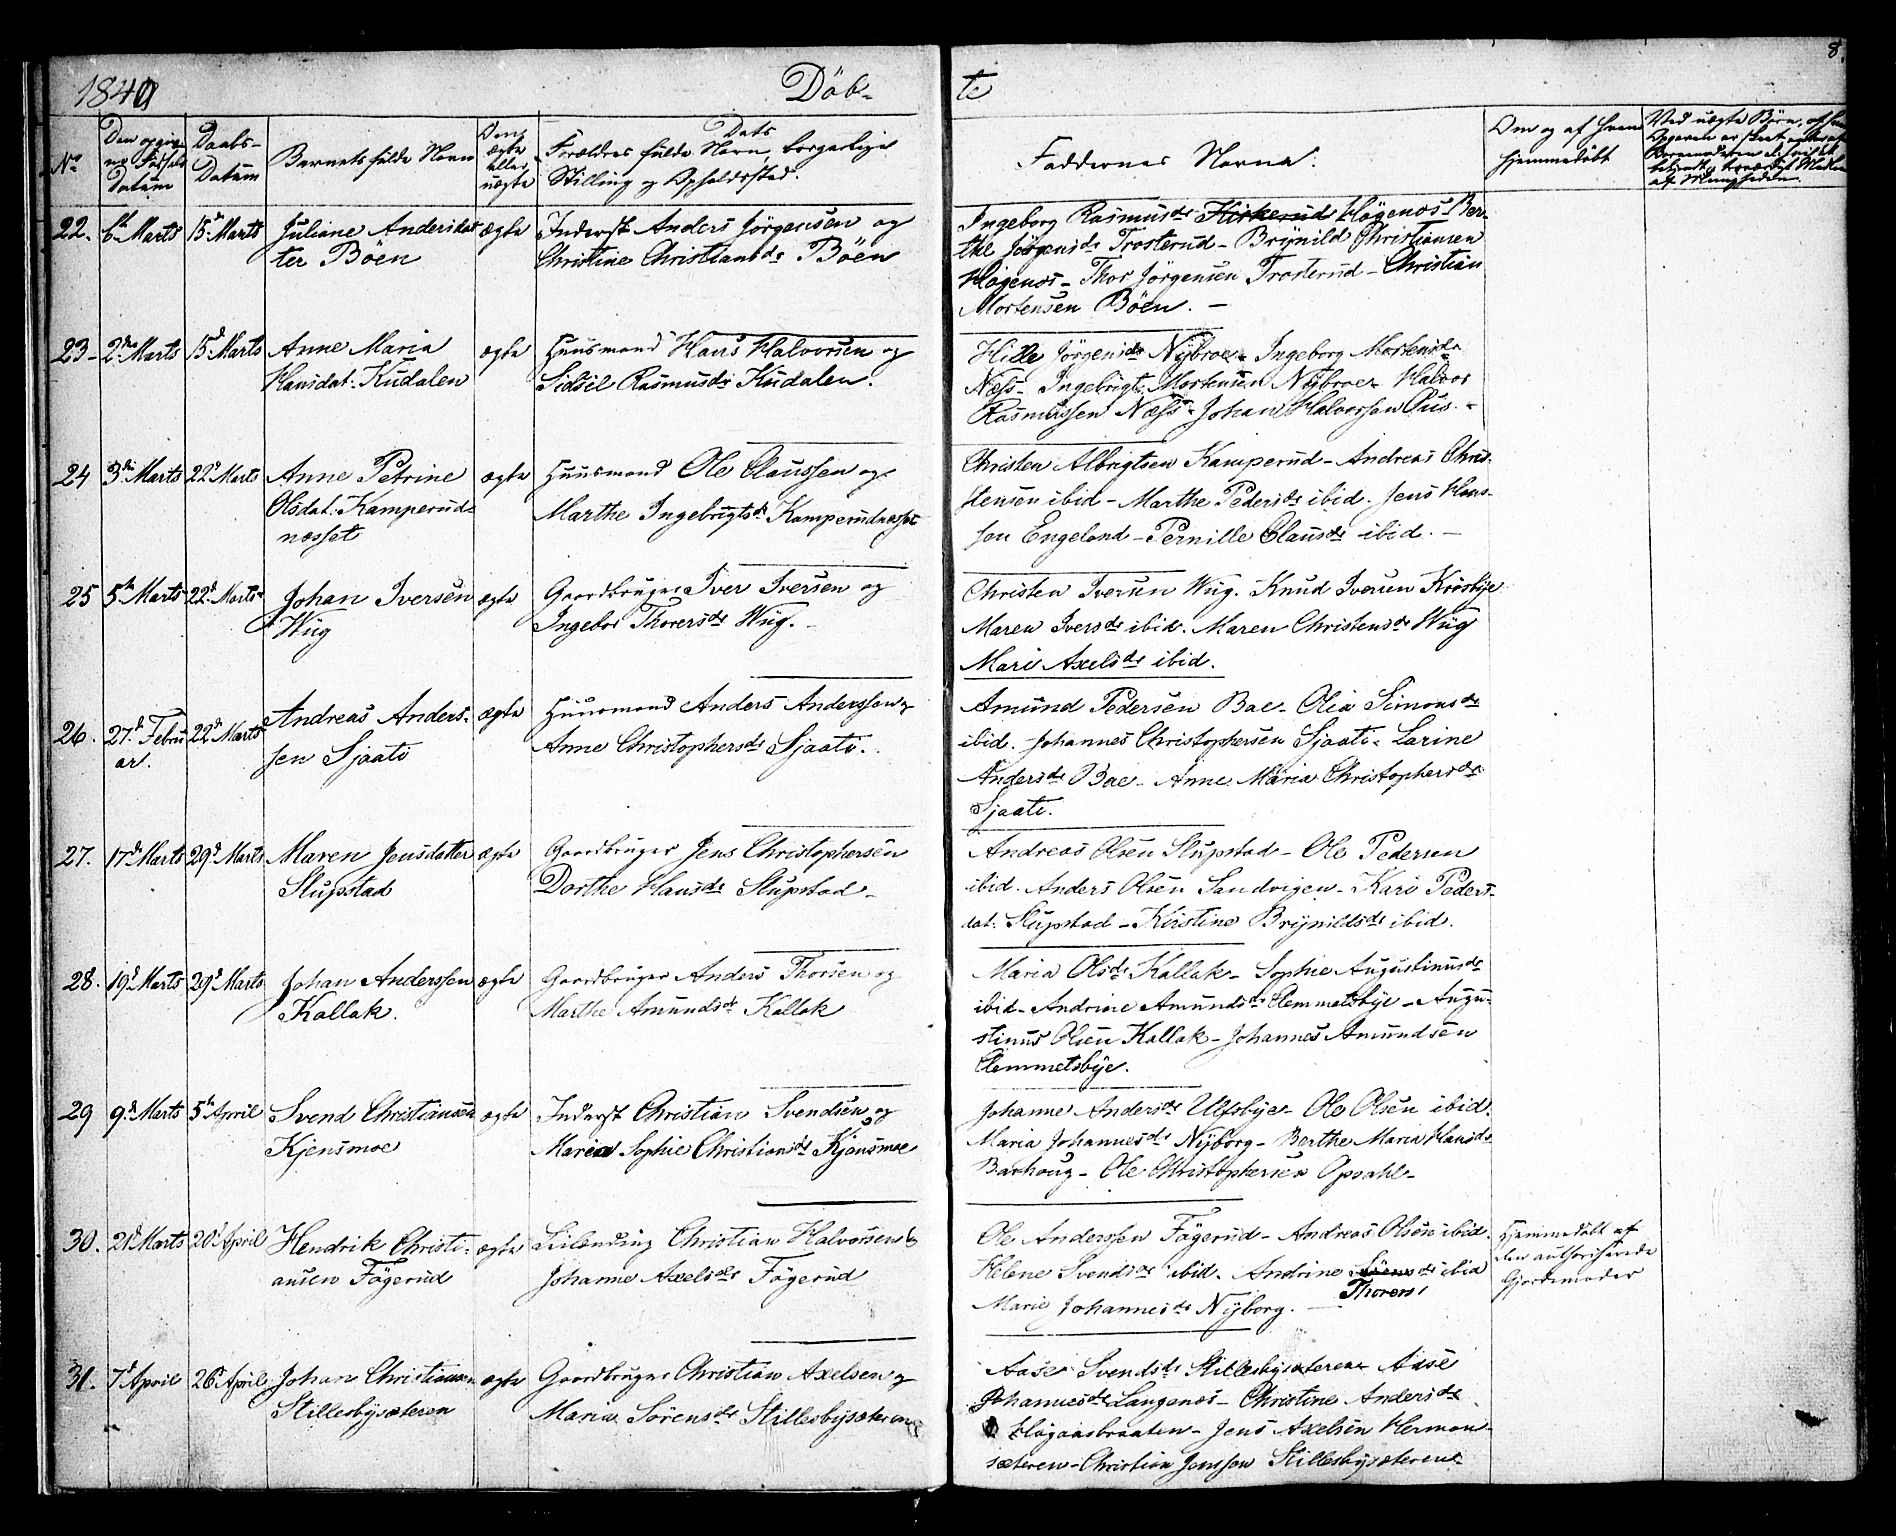 8.
1840
Döb-
te
No
Den opgiv-
ne Födsels
Datum
Daabs-
Datum
Barnets fulde Navn
Om
ægte
eller
uægte
Dats
Forældres fulde Navn, borgerlige
Stilling og Opholdssted.
Faddernes Navne.
Om og af hvem
hjemmedöbt
Ved uægte Börn, af
22. 6te Marts 15de Marts Juliane Andersdat- ægte Inderst Anders Jörgensen og
ter Böen Christine Christiansdr Böen
Ingeborg Rasmusdr Kirkerud Högenos- Ber-
the Jörgensdr Trosterud- Brÿnild Christiansen
Högenos- Thor Jörgensen Trosterud- Christian
Mortensen Böen. -
23- 2den Marts 15de Marts Anne Maria ægte Huusmand Hans Halvorsen og
Hansdat: Kudalen Sidsil Rasmusdr Kudalen.
Hille Jörgensdr Nÿbroe- Ingeborg Mortensdr
Næss- Ingebrigt Mortensen Nÿbroe- Halvor
Rasmussen Næss- Johan Halvorssen Ous. -
24 3die Marts 22de Marts Anne Petrine ægte Huusmand Ole Claussen og
Olsdat: Kamperud- Marthe Ingebrigtsdr Kamperudnæsset
næsset
Christen Albrigtsen Kamperud- Andreas Chris-
tensen ibid- Marthe Pedersdr ibid. Jens Hans-
sen Engeland- Pernille Clausdr ibid. -
25 5te Marts 22de Marts Johan Iversen ægte Gaardbruger Iver Iversen og
Wiig Ingebor Thorersdr Wiig. -
Christen Iversen Wiig. Knud Iversen Krosbÿe
Maren Iversdr ibid. Maren Christensdr Wiig
Mari Axelsdr ibid.
26. 27de Febru- 22de Marts Andreas Anders- ægte Huusmand Anders Anderssen og
ar. sen Sjaati Anne Christophersdr Sjaati.
Amund Pedersen Bae- Olea Simonsdr
ibid. Johannes Christophersen Sjaati- Larine
Andersdr Bae- Anne Maria Christophersdr
Sjaati.
27. 17de Marts 29de Marts Maren Jensdatter ægte Gaardbruger Jens Christophersen
Slupstad Dorthe Hansdr Slupstad-
Andreas Olsen Slupstad- Ole Pedersen
ibid. Anders Olsen Sandvigen- Kari Peders-
dat. Slupstad- Kirstine Brÿnildsdr ibid.
28. 19de Marts 29de Marts Johan Anderssen ægte Gaardbruger Anders Thorsen og
Kallak. Marthe Amundsdr Kallak
Maria Olsdr Kallak- Sophie Augustinusdr
ibid- Andrine Amundsdr Clemmetsbÿe- Augu-
stinus Olsen Kallak- Johannes Amundsen
Clemmetsbÿe.
29 9de Marts 5te April Svend Christiansen ægte Inderst Christian Svendsen og
Kjensmoe Maria Sophie Christiansdr Kjensmoe
Johanne Andersdr Ulfsbÿe- Ole Olsen ibid.
Maria Johannesdr Nÿborg- Berthe Maria Hansdr
Barhoug- Ole Christophersen Opsahl-
30. 21de Marts 20de April Hendrik Christi- ægte Leilending Christian Halvorsen &
ansen Fögerud Johanne Axelsdr Fögerud
Ole Anderssen Fögerud- Andreas Olsen ibid.
Helene Svendsdr ibid. Andrine dr ibid
Thorers
Marie Johannesdr Nÿborg. -
Hjemmedöbt af
den authoriserede
Gjordemoder
31. 7de April 26de April Johan Christiansen ægte Gaardbruger Christian Axelsen og
Stillesbÿsæteren Maria Sörensdr Stillesbÿsæteren
Aase Svendsdr Stillesbÿsæteren- Aase
Johannesdr Langenæs- Christine Andersdr
Högaasbraaten- Jens Axelsen Herman-
sæteren- Christian Jenssen Stillesbÿsæteren-